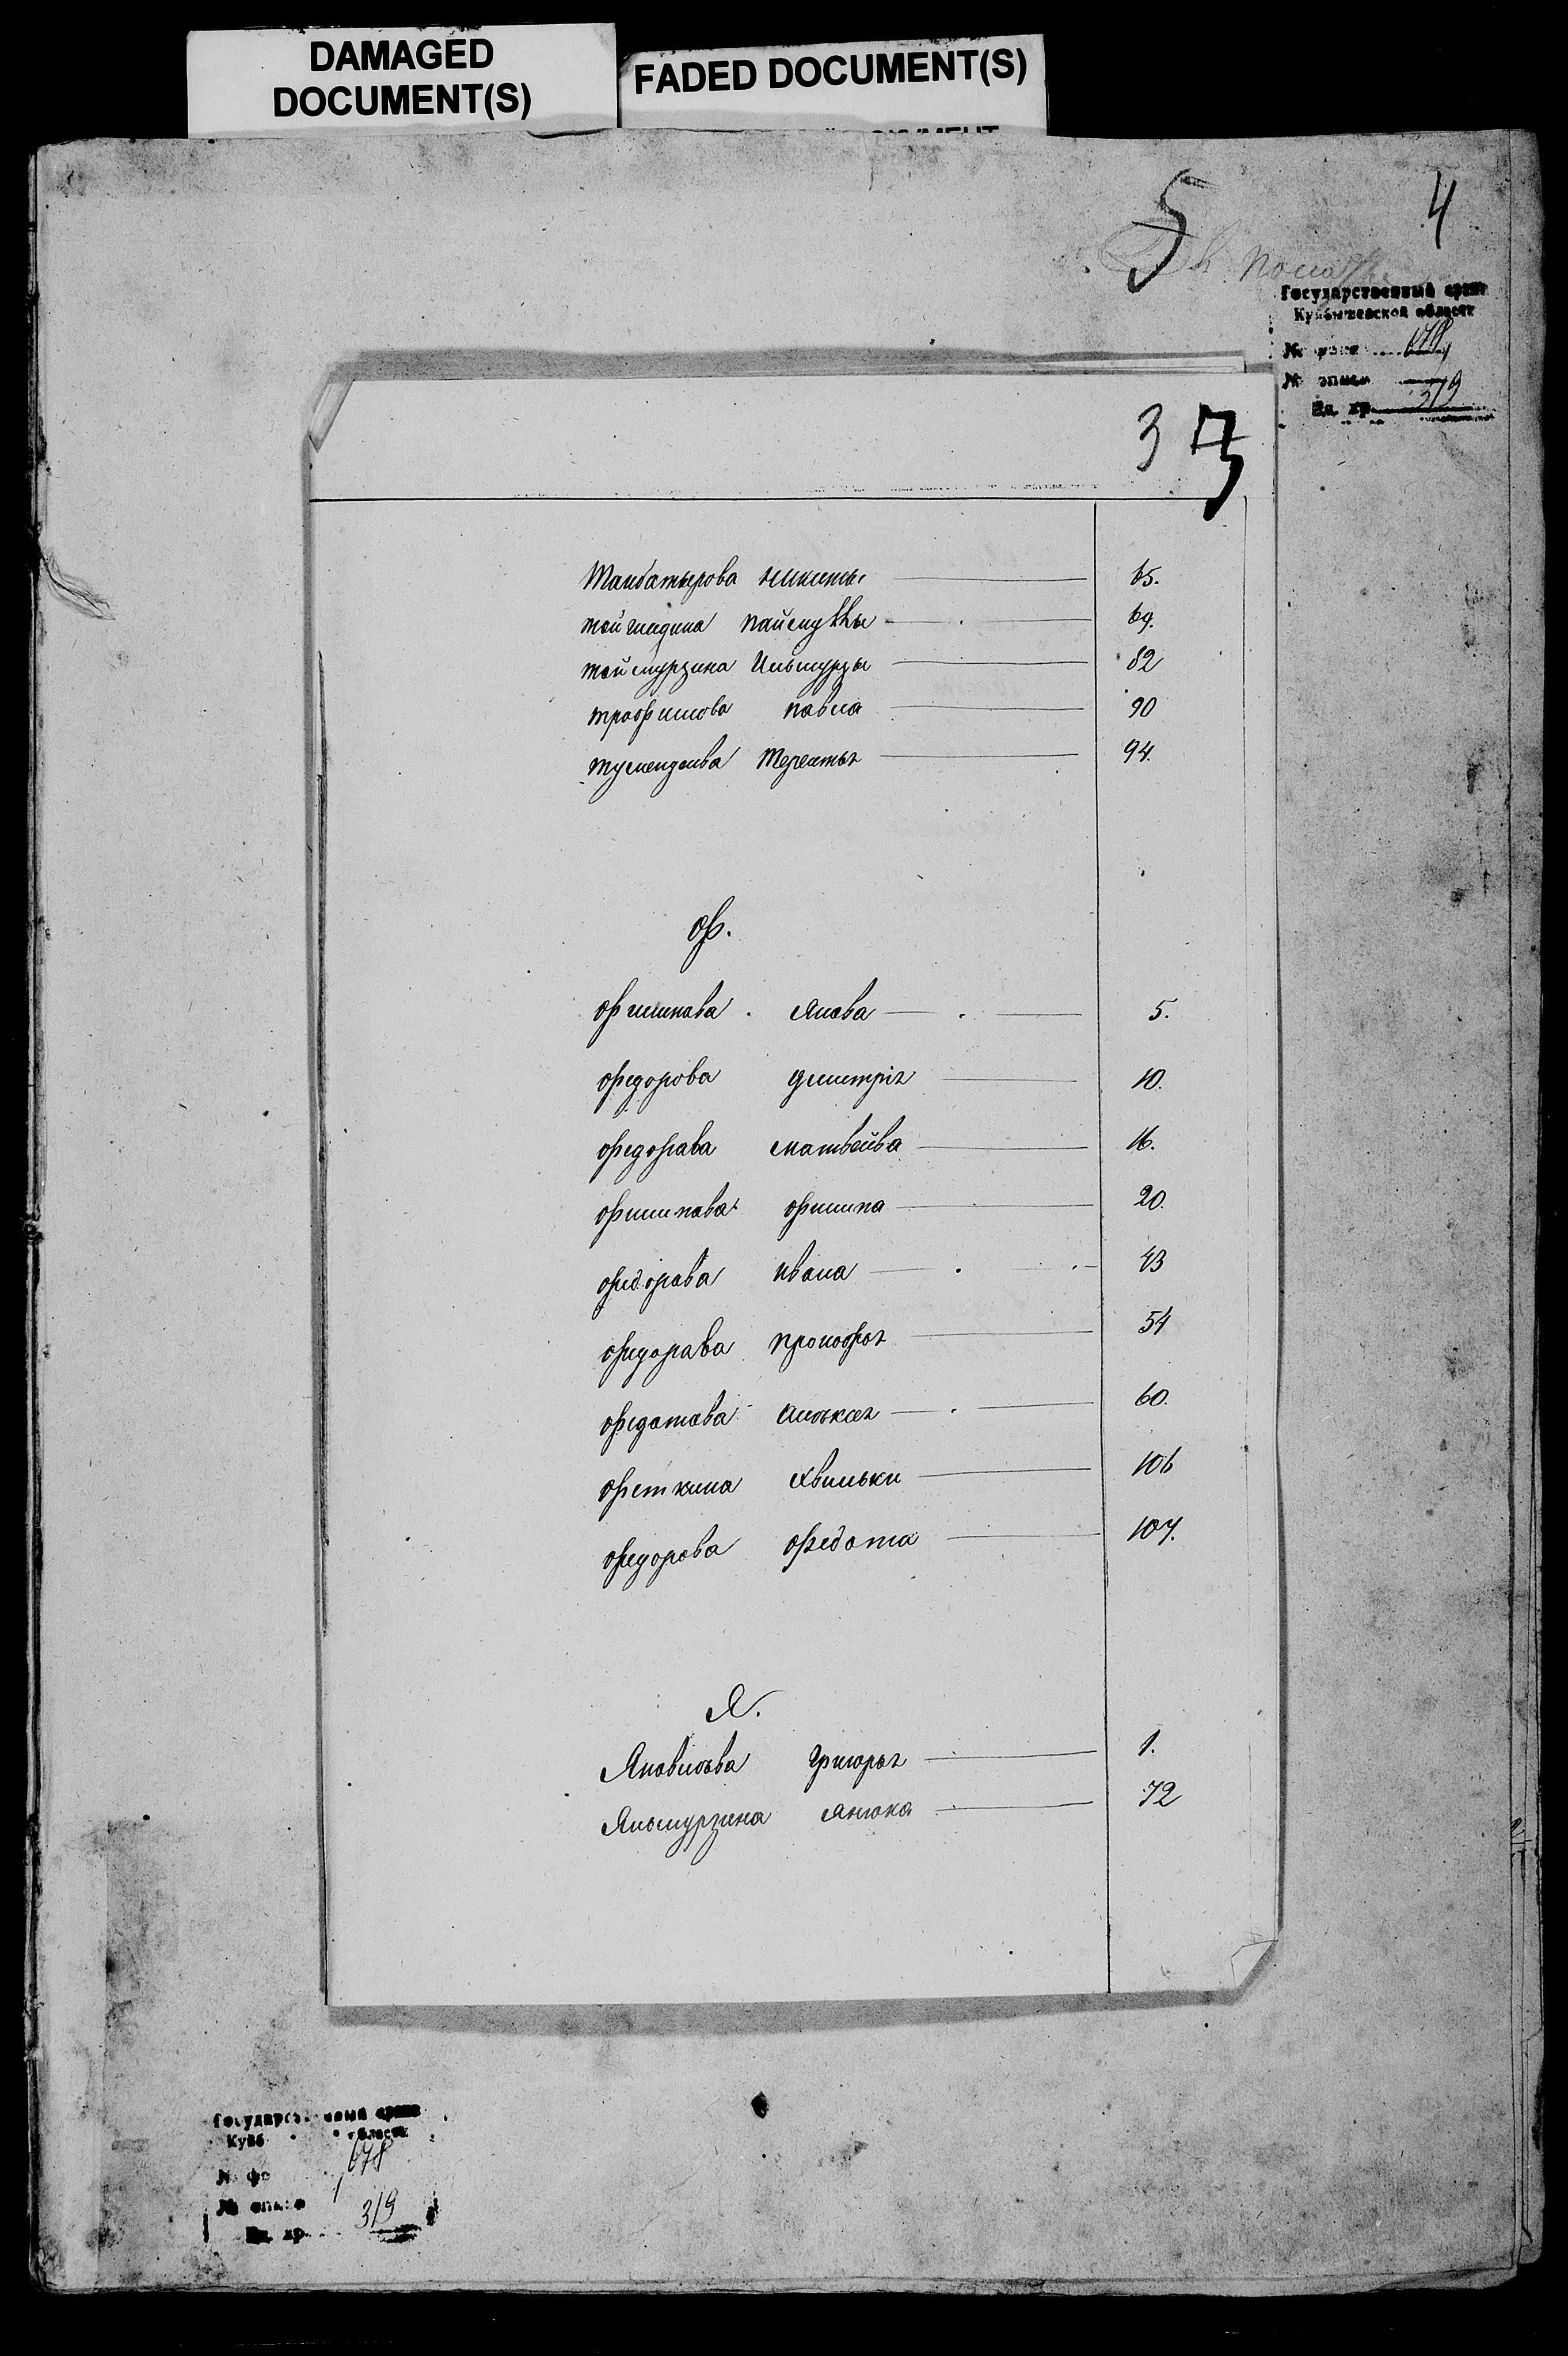 DAMAGED
DOCUMENT(S)
FADED DOCUMENT(S)
5
4
Государственный архив
Куйбышевской области
№ фонда 678
№ описи 1
Ед. хр. 319
3 3
Таибатырова Никиты 65.
Таймурзина Ильмурзы 82
Трофимова Павла 90
Терентья 94.
Ф.
Филипова Якова 5.
Федорова Дмитрія 10.
Федорава Матвейва 16.
Филипава Филипа 20.
Федорава Ивана 43
Федорава Прокофья 54
Федатава Алексея 60.
Феткина 106
Федорова Федота 107.
Я.
Яковлева Григорья 1.
Яльмурзина Янюка 72
Государственный архив
Куйб области
№ фо 678
№ описи 1
Ед. хр. 319